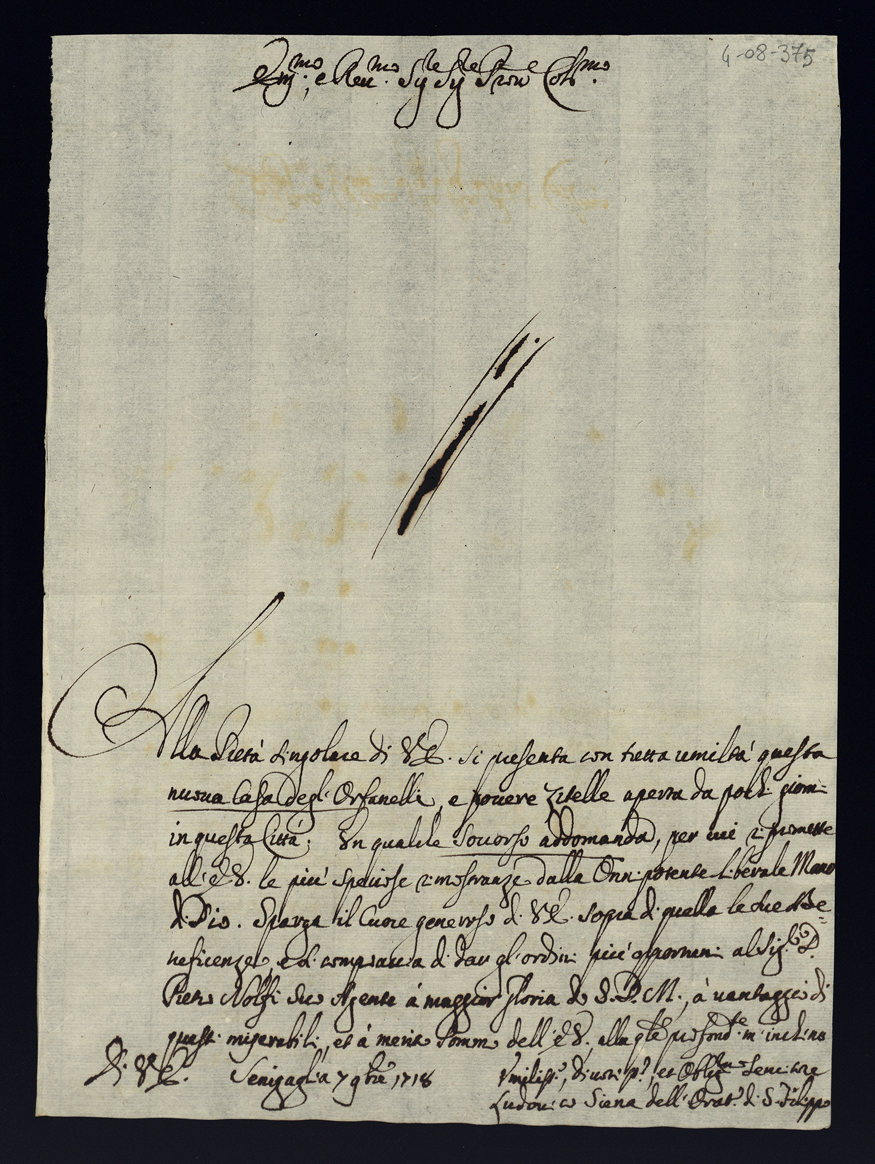 4-08-375
Em:mo, e Reu:mo Sig:re Sig:re Pron:e Col:mo
Alla Pietà singolare di V.E. si presenta con tutta umiltà questa
nuova Casa degl'Orfanelli, e povere Zitelle aperta da pochi giorni
in questa Città; Un qualche soccorso addomanda, per cui si promette
all'E.V. le più speciose rimostranze dalla Onnipotente Liberale Mano
di Dio. Sparga il Cuore generoso di V.E. sopra di quella le sue Be=
neficenze, e si compiaccia di dar gl'ordini più opportuni al Sig:r D.
Pietro Nolfi suo Agente à maggior gloria di S.D.M., à vantaggio di
questi miserabili, et à merito sommo dell'E.V. alla q:le profond:te m'inchino
Di V.E. Senigaglia 7 9bre 1718 Vmiliss:o, Diuot:mo, et Oblig:mo Seruitore
Ludouico Siena dell'Orat:o di S. Filippo